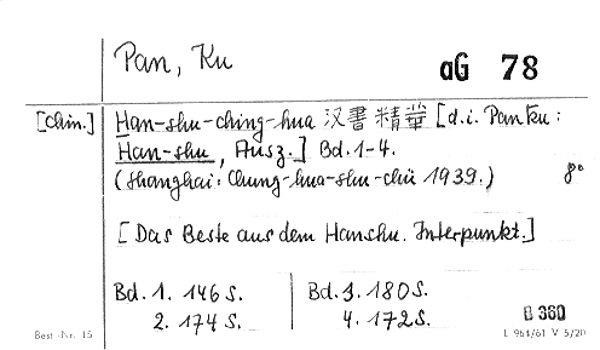 Pan, Ku
aG 78
[Chin.] Han-shu-ching-hua 汉書精華 [d.i. Pan Ku:
Han-shu, Ausz.] Bd. 1-4.
(Shanghai: Chung-hua-shu-chü 1939.) 8°
[Das Beste aus dem Hanshu. Interpunkt.]
Bd. 1. 146 S. Bd. 3. 180 S.
2. 174 S. 4. 172 S.
B 360
Best.-Nr. 15 L 964/61 V 5/20